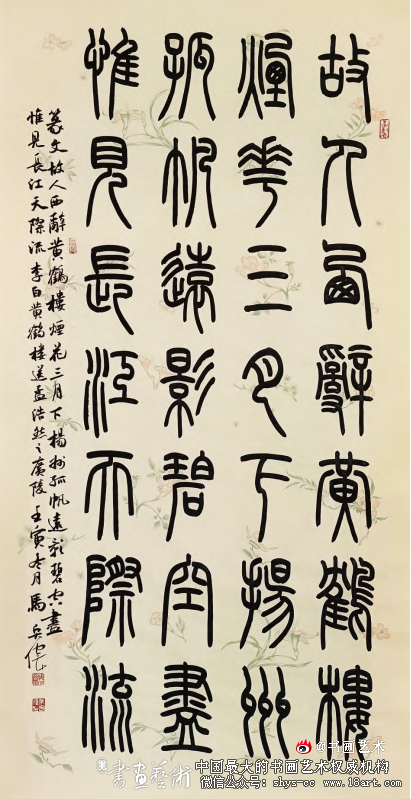 故人西辭黃鶴樓
煙花三月下揚州
孤帆遠影碧空盡
惟見長江天際流
篆文故人西辭黃鶴樓煙花三月下揚州孤帆遠影碧空盡
惟見長江天際流李白黃鶴樓送孟浩然之廣陵壬寅冬月馬兵
书画艺术
書畫藝術
中国最大的书画艺术权威机构
微信公众号：shys-sc www.18art.com